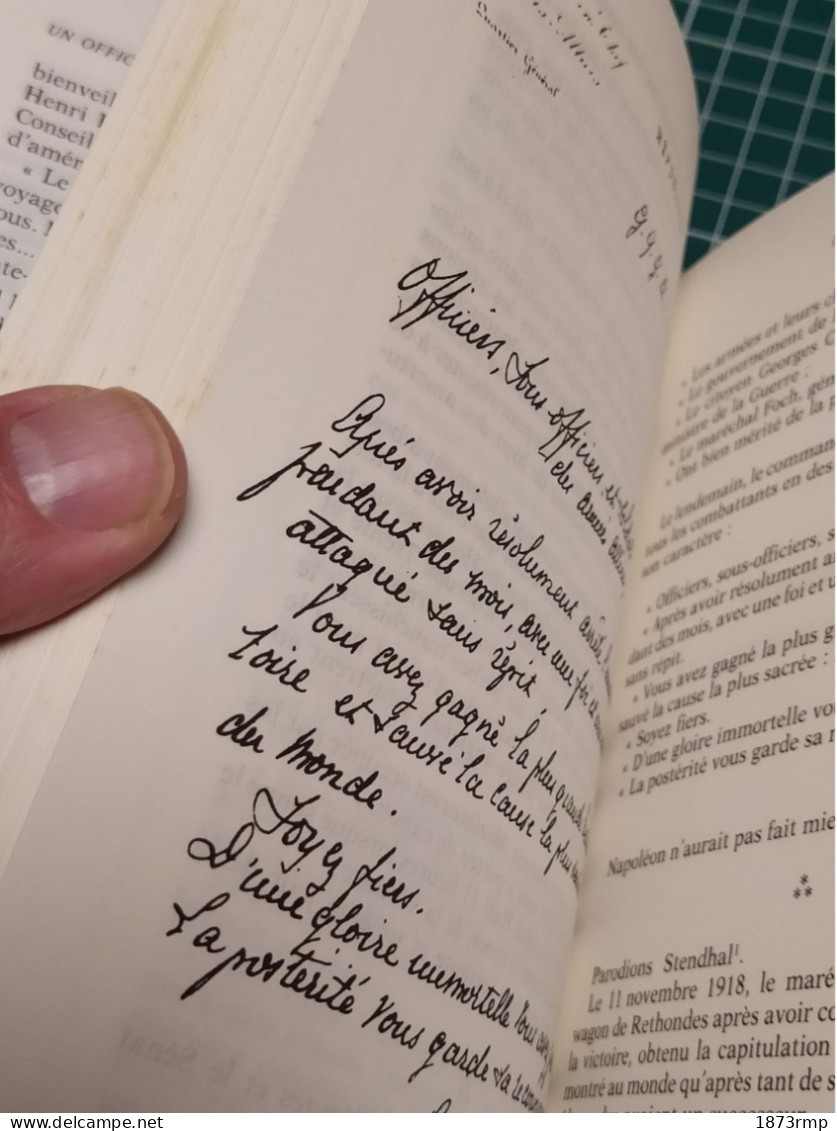 UN OFFIC
bienveil
Henri
Conseil
d'amér
« Le
voyage
ous.
es...
nte-
Quartier Général
G. Q. G. A
Officiers, Sous officiers et
des armées alliées
Après avoir résolument arrêté
pendant des mois, avec une foi et
attaqué sans répit.
Vous avez gagné la plus grande
toire et sauvé la cause la plus
du monde.
Soyez fiers.
D'une gloire immortelle vous avez
La postérité vous garde sa
« Les armées et leurs c
« Le gouvernement de
« Le citoyen Georges C
ministre de la Guerre :
« Le maréchal Foch, gén
« Ont bien mérité de la p
Le lendemain, le comman
tous les combattants en des
son caractère :
« Officiers, sous-officiers, s
« Après avoir résolument a
dant des mois, avec une foi et u
sans répit.
« Vous avez gagné la plus g
sauvé la cause la plus sacrée :
« Soyez fiers.
« D'une gloire immortelle vou
« La postérité vous garde sa r
Napoléon n'aurait pas fait mie
***
Parodions Stendhal¹.
Le 11 novembre 1918, le maré
wagon de Rethondes après avoir co
la victoire, obtenu la capitulation
montré au monde qu'après tant de s
le Sénat
delcampe.net
1873rmp